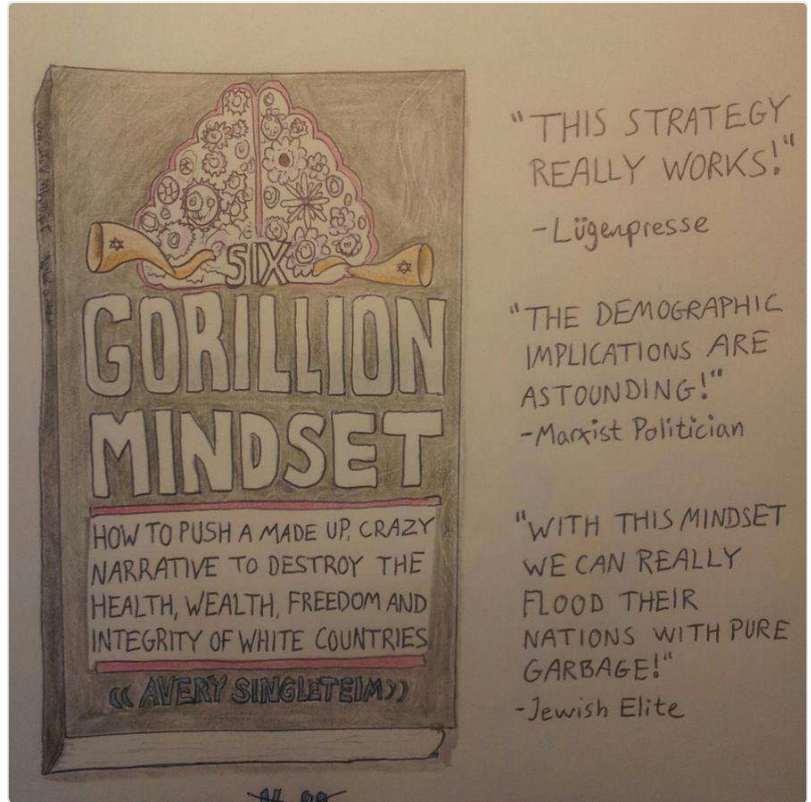 SIX
GORILLION
MINDSET
HOW TO PUSH A MADE UP, CRAZY
NARRATIVE TO DESTROY THE
HEALTH, WEALTH, FREEDOM AND
INTEGRITY OF WHITE COUNTRIES
(( AVERY SINGLETEIM))
"THIS STRATEGY
REALLY WORKS!"
-Lügenpresse
"THE DEMOGRAPHIC
IMPLICATIONS ARE
ASTOUNDING!"
-Marxist Politician
"WITH THIS MINDSET
WE CAN REALLY
FLOOD THEIR
NATIONS WITH PURE
GARBAGE!"
-Jewish Elite